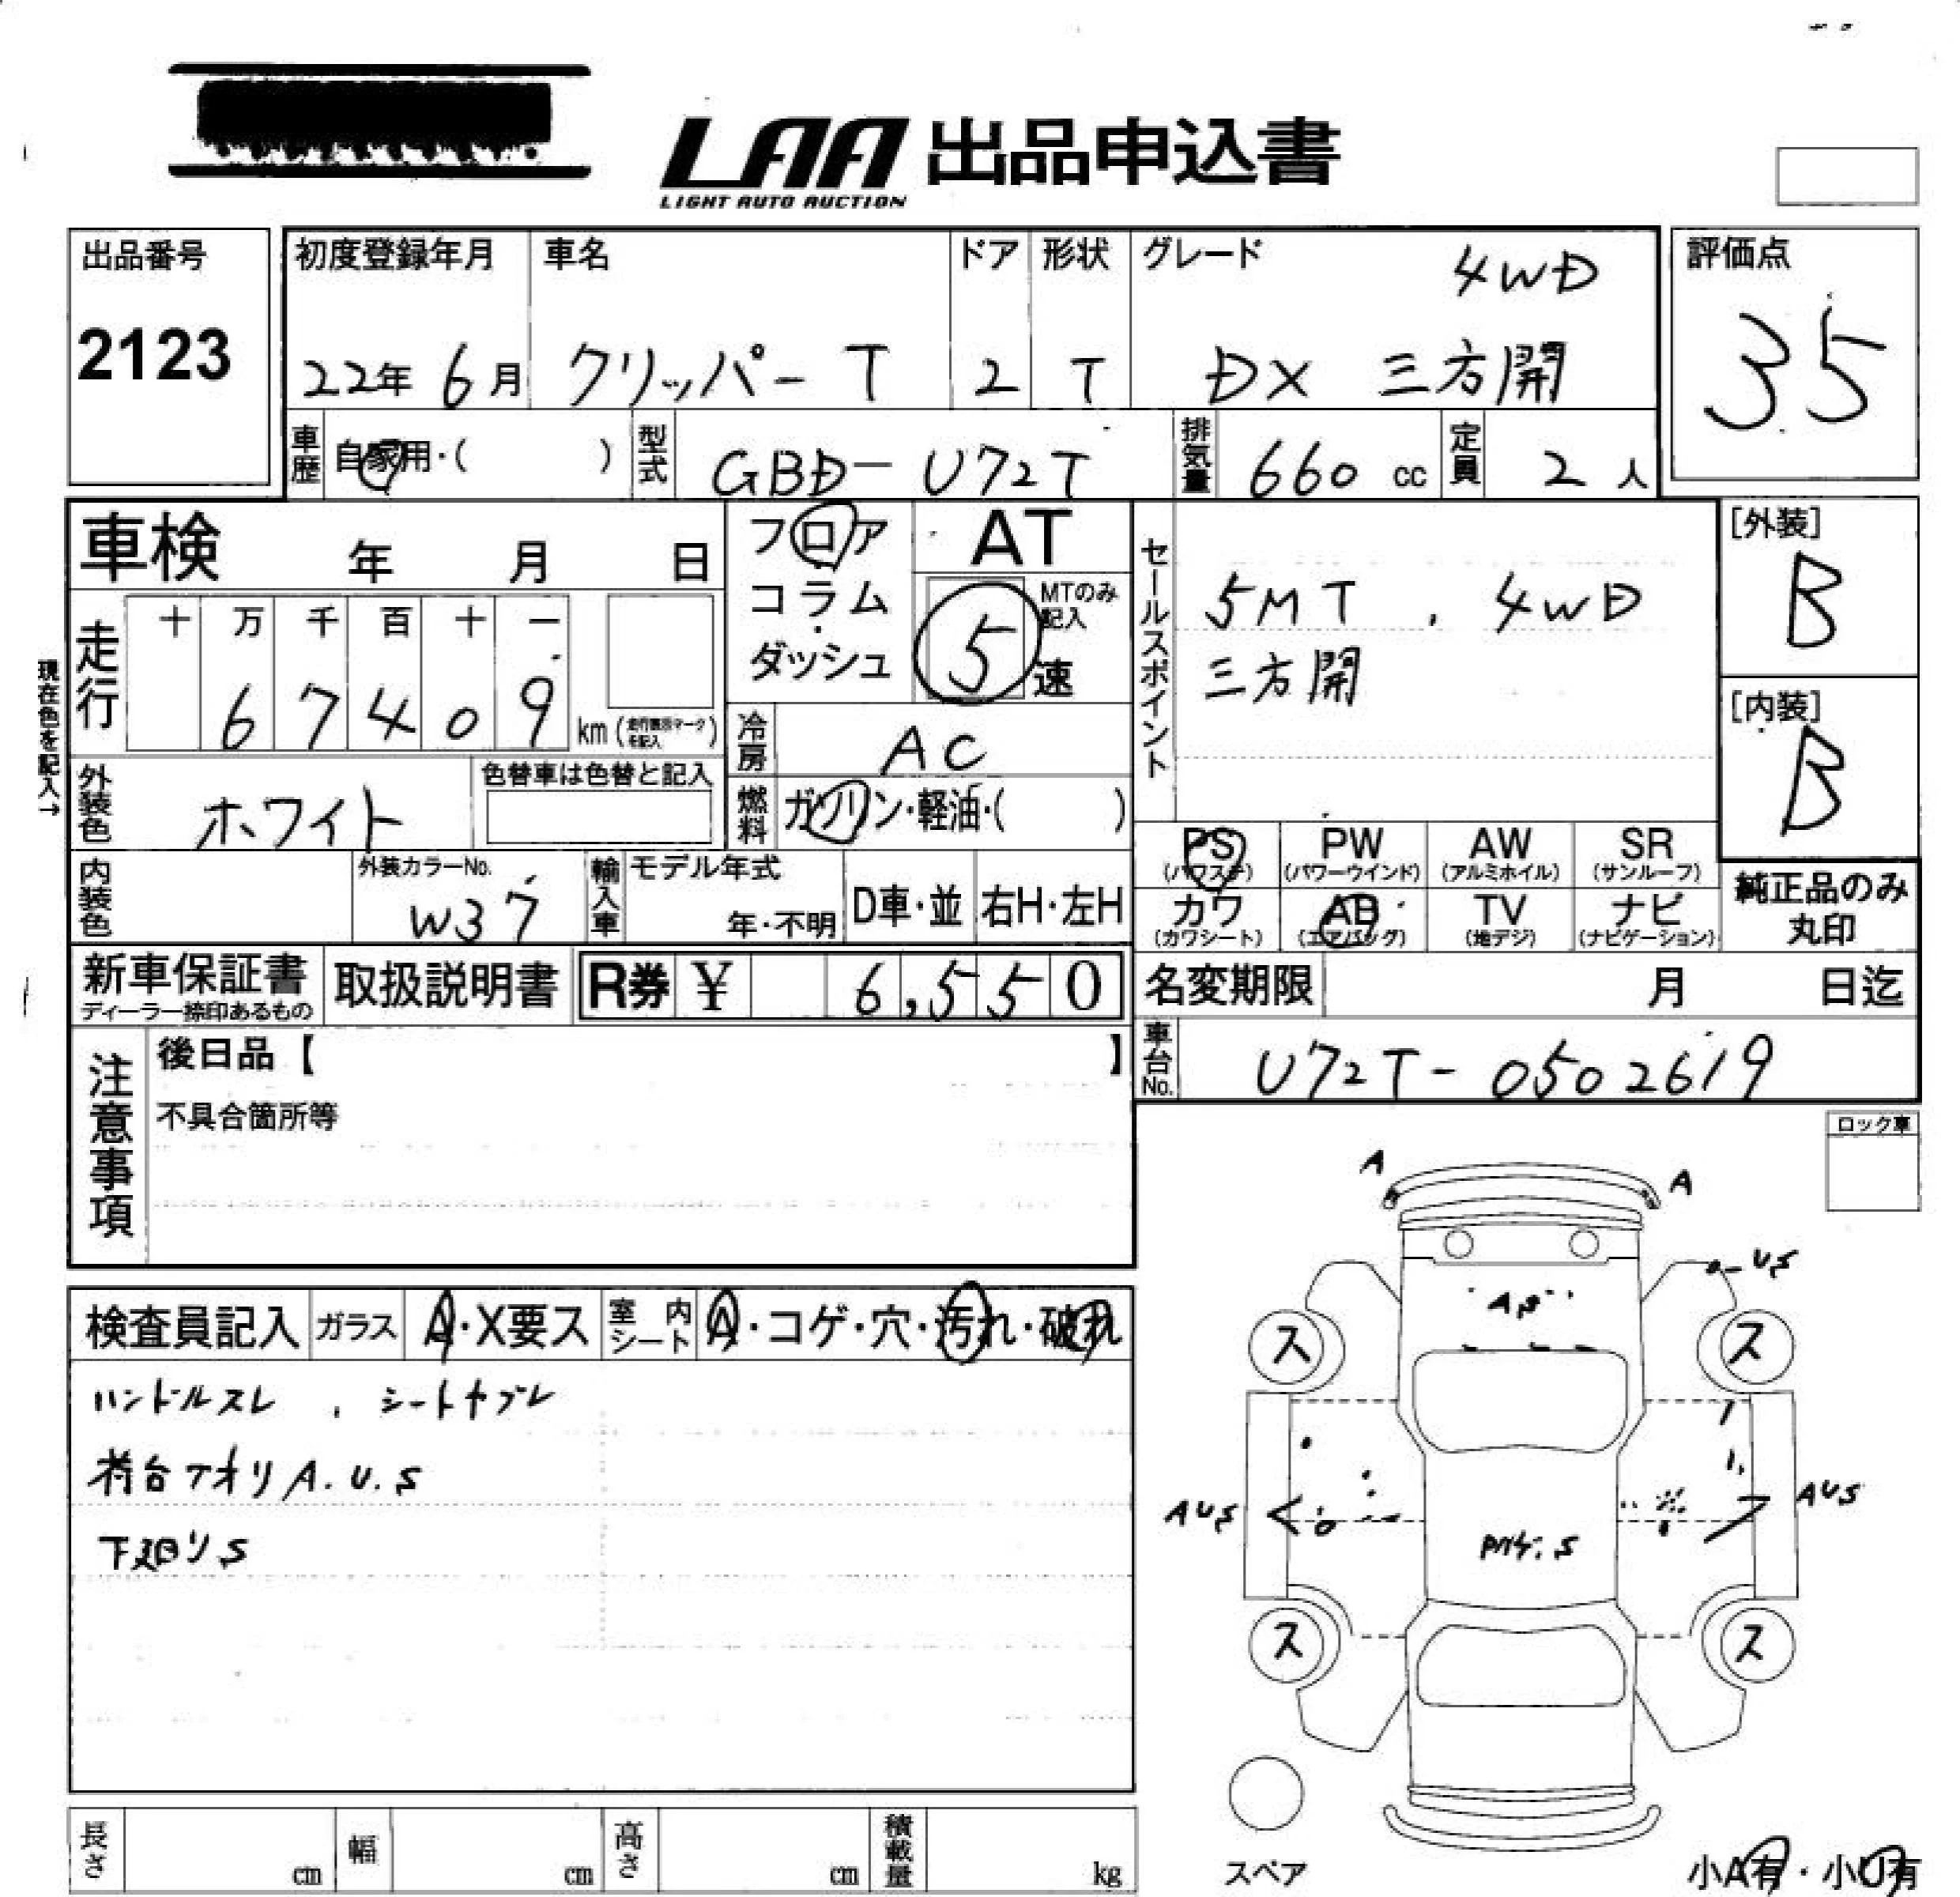 LAA 出品申込書
LIGHT AUTO AUCTION
出品番号
2123
初度登録年月
22年 6月
車名
クリッパー T
ドア
2
形状
T
グレード
4WD
DX 三方開
評価点
3.5
車歴
自家用・( )
型式
GBD-U72T
排気量
660 cc
定員
2 人
車検 年 月 日
フロア
コラム
・
ダッシュ
AT
MTのみ記入
5 速
セールスポイント
5MT . 4WD
三方開
[外装]
B
[内装]
B
現在色を記入→
走行
十 万 千 百 十 一
6 7 4 0 9 km
冷房
AC
外装色
ホワイト
色替車は色替と記入
燃料
ガソリン・軽油・( )
PS PW AW SR
(パワステ) (パワーウインド) (アルミホイル) (サンルーフ)
カワ AB TV ナビ
(カワシート) (エアバッグ) (地デジ) (ナビゲーション)
純正品のみ
丸印
内装色
外装カラーNo.
W37
輸入車
モデル年式
年・不明
D車・並
右H・左H
新車保証書
ディーラー捺印あるもの
取扱説明書
R券 ¥ 6,550
名変期限 月 日迄
車台No.
U72T-0502619
注意事項
後日品【 】
不具合箇所等
ロック車
検査員記入
ガラス
A・X要ス
室内シート
A・コゲ・穴・汚れ・破れ
ハンドルスレ . シートヤブレ
荷台アオリ A.U.S
下廻りS
A
A
US
A,S
ス
ス
AUS
AUS
ス
ス
スペア
小A有・小U有
長さ cm
幅 cm
高さ cm
積載量 kg